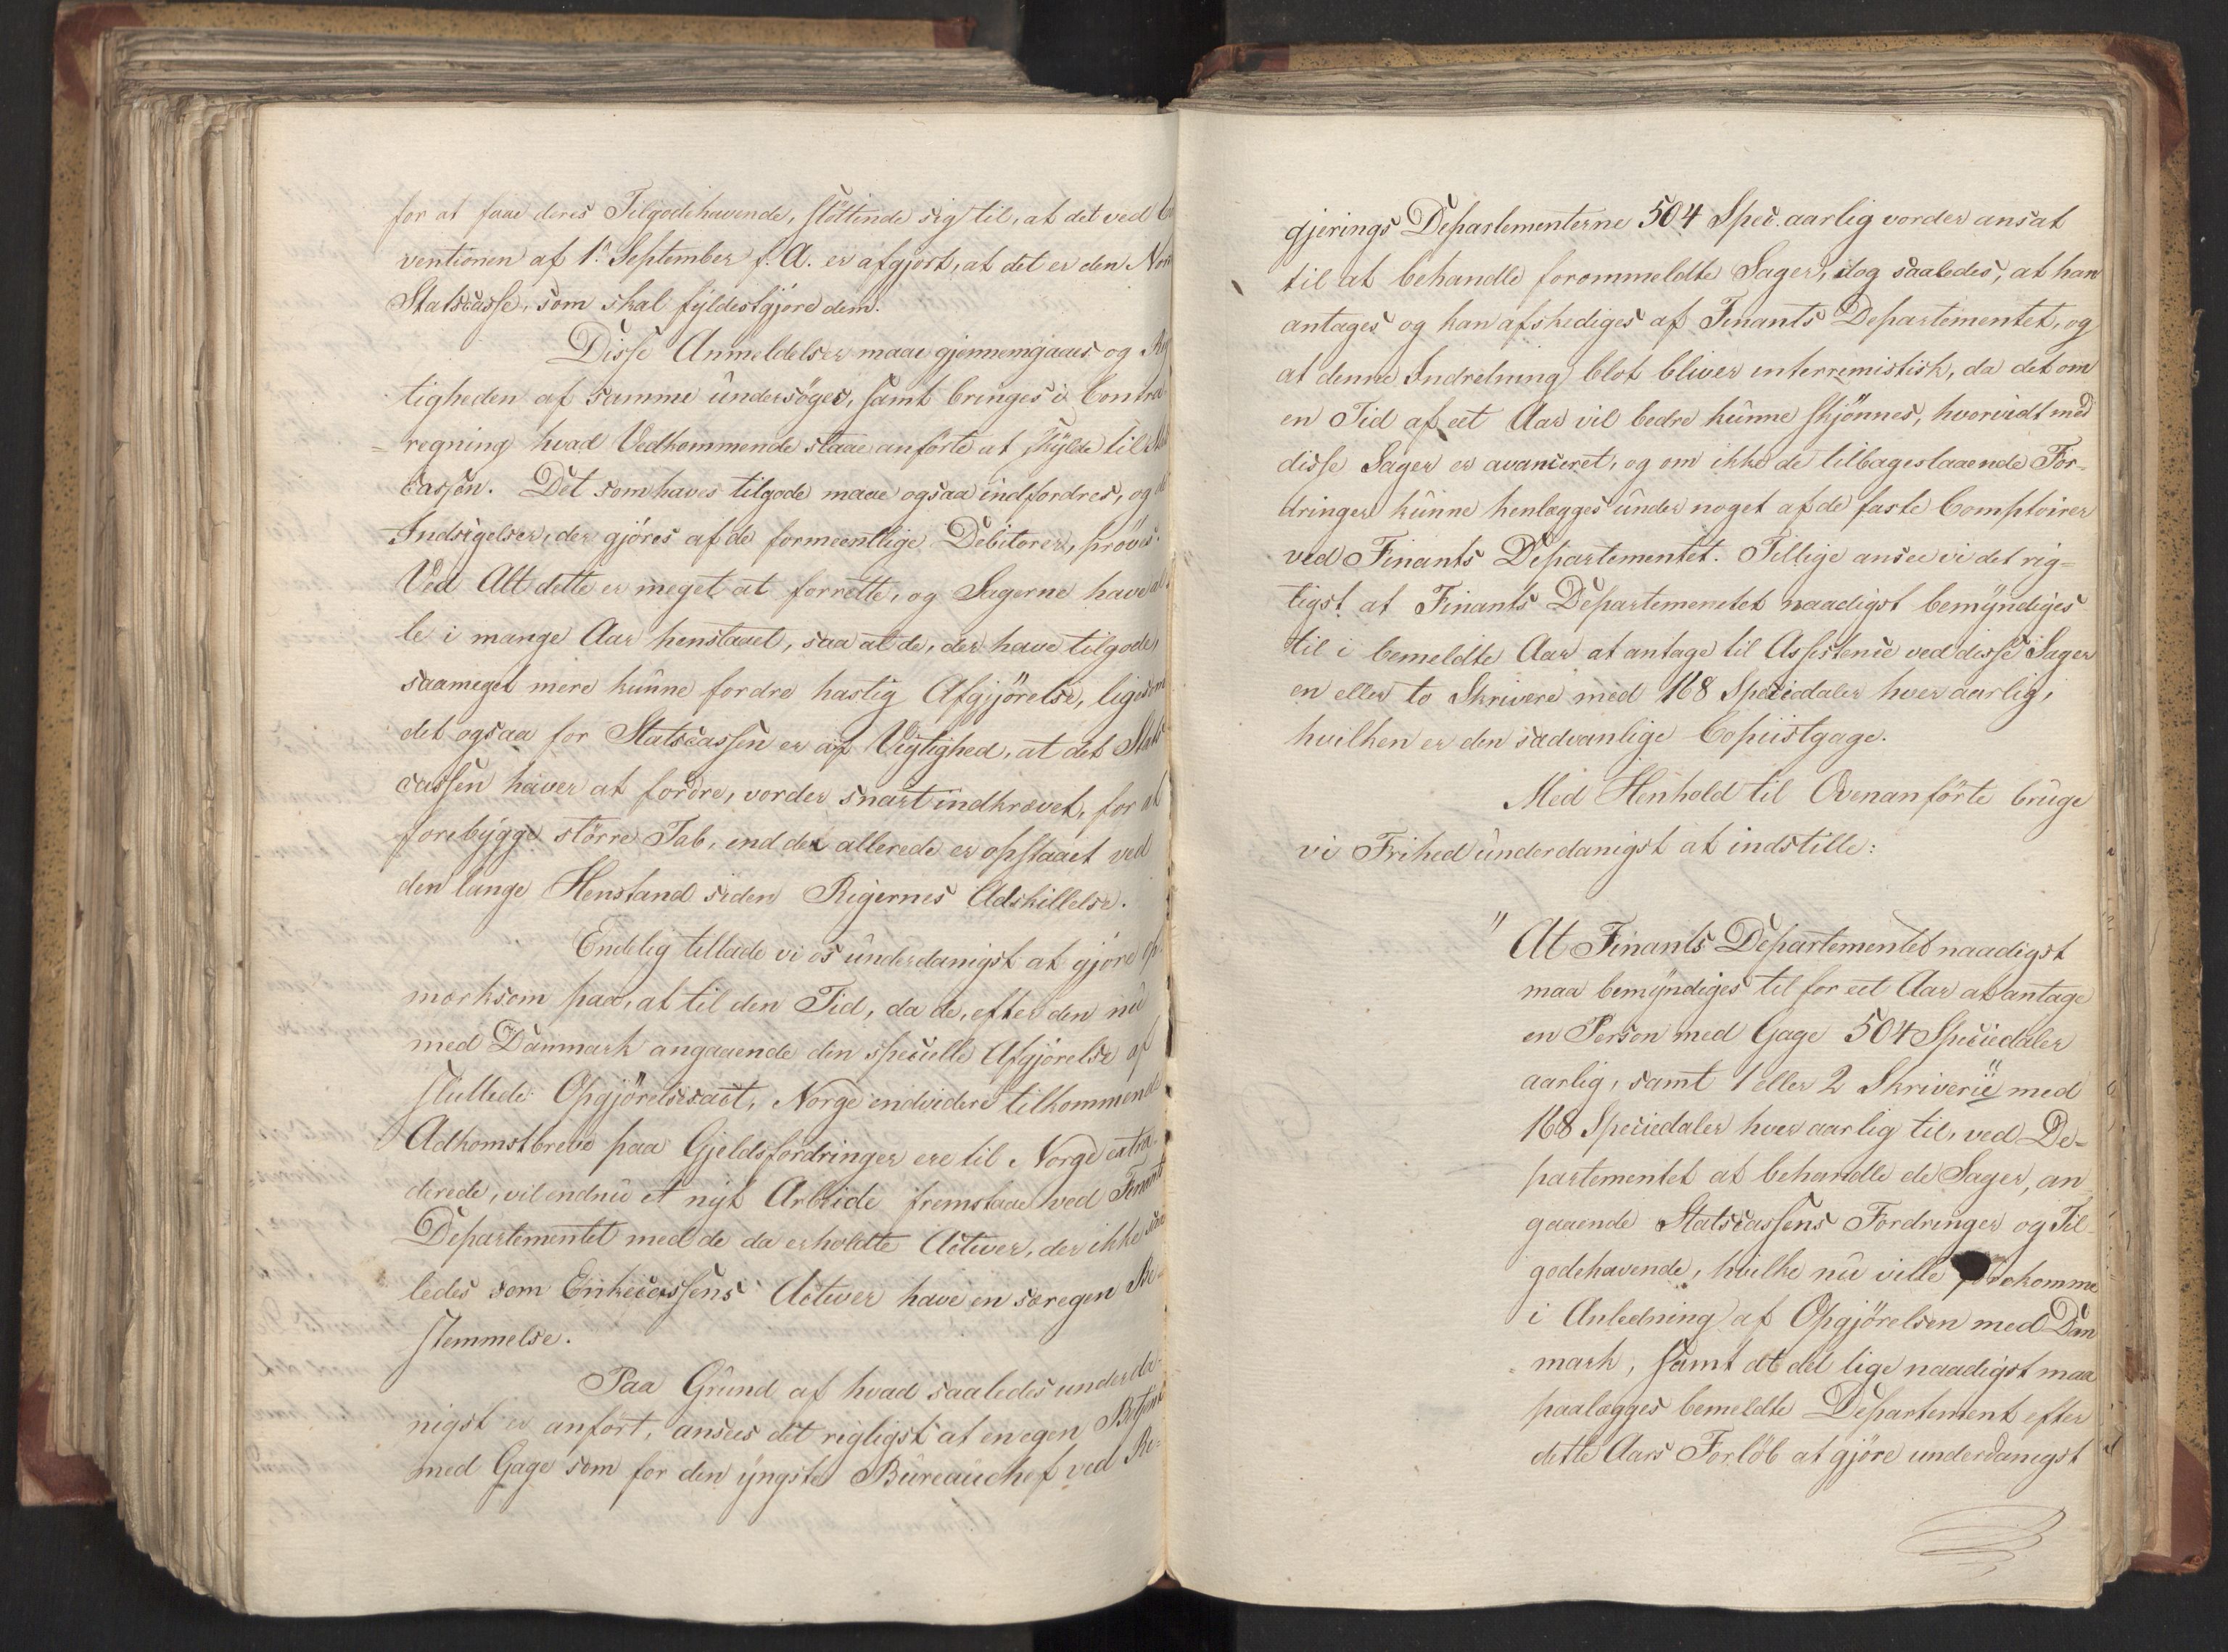 for at faae deres Tilgodehavende, støttende sig til, at det ved
ventionen af 1ᵉ September f. A. er afgjort, at det er den
Statscasse, som skal fyldestgjøre dem.
Disse Anmeldelser maae gjennemgaaes og
tigheden af samme undersøges, samt bringes i Contra-
=regning hvad Vedkommende staae anførte at skylde til
cassen. Det som haves tilgode maae ogsaa indfordres, og
Indsigelser, der gjøres af de formeentlige Debitorer, prøves.
Ved Alt dette er meget at forrette, og Sagerne have
le i mange Aar henstaaet, saa at de, der have tilgode,
saameget mere kunne fordre hastig Afgjørelse, ligesom
det ogsaa for Statscassen er af Vigtighed, at det Stats
cassen haver at fordre, vorder snart indkrævet, for at
forebygge større Tab, end der allerede er opstaaet ved
den lange Henstand siden Rigernes Adskillelse.
Endelig tillade vi os underdanigst at gjøre op
mærksom paa, at til den Tid, da de, efter den nu
med Danmark angaaende den specielle Afgjørelse af
sluttede Opgjørelsesact, Norge endvidere tilkommende
Adkomstbreve paa Gjeldsfordringer ere til Norge extra-
derede, vil endnu et nyt Arbeide fremstaae ved Finants
Departementet med de da erholdte Activer, der ikke saa
ledes som Enkecassens Activer have en særegen Be-
stemmelse.
Paa Grund af hvad saaledes underda-
nigst er anført, ansees det rigtigst at en egen Betjent
med Gage som for den yngste Bureauchef ved Re-
gjerings Departementerne 504 Spec. aarlig vorder ansat
til at behandle forommeldte Sager, dog saaledes, at han
antages og kan afskediges af Finants Departementet, og
at denne Indretning blot bliver interremistisk, da det om
en Tid af eet Aar vil bedre kunne skjønnes, hvorvidt med
disse Sager er avanceret, og om ikke de tilbagestaaende For-
dringer kunne henlægges under noget af de faste Comptoirer
ved Finants Departementet. Tillige ansee vi det rig=
tigst at Finants Departementet naadigst bemyndiges
til i bemeldte Aar at antage til Assistence ved disse Sager
en eller to Skrivere med 168 Speciedaler hver aarlig,
hvilken er den sædvanlige Copiistgage.
Med Henhold til Ovenanførte bruge
vi Frihed underdanigst at indstille:
" At Finants Departementet naadigst
maa bemyndiges til for eet Aar at antage
en Person med Gage 504 Speciedaler
aarlig, samt 1 eller 2 Skrivere med
168 Speciedaler hver aarlig til, ved De-
partementet at behandle de Sager, an
gaaende Statscassens Fordringer og Til-
godehavende, hvilke nu ville forekomme
i Anledning af Opgjørelsen med Dan
mark, samt at det lige naadigst maa
paalægges bemeldte Departement efter
dette Aars Forløb at gjøre underdanigst